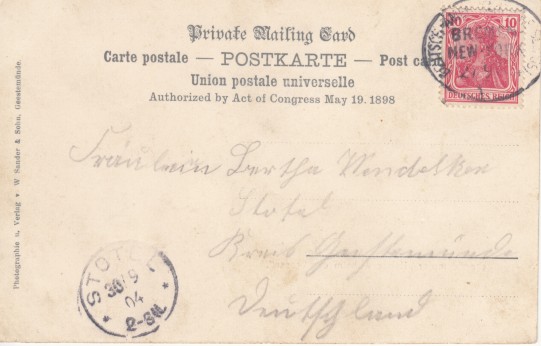 Private Mailing Card
Carte postale — POSTKARTE — Post card
Union postale universelle
Authorized by Act of Congress May 19. 1898
10
BREM
NEW-YORK
DEUTSCHES REICH
Fräulein Bertha
Stotel
Kreis Geestemünde
Deutschland
STOTEL
30/9
04
2-3N.
Photographie u. Verlag v. W Sander & Sohn, Geestemünde.